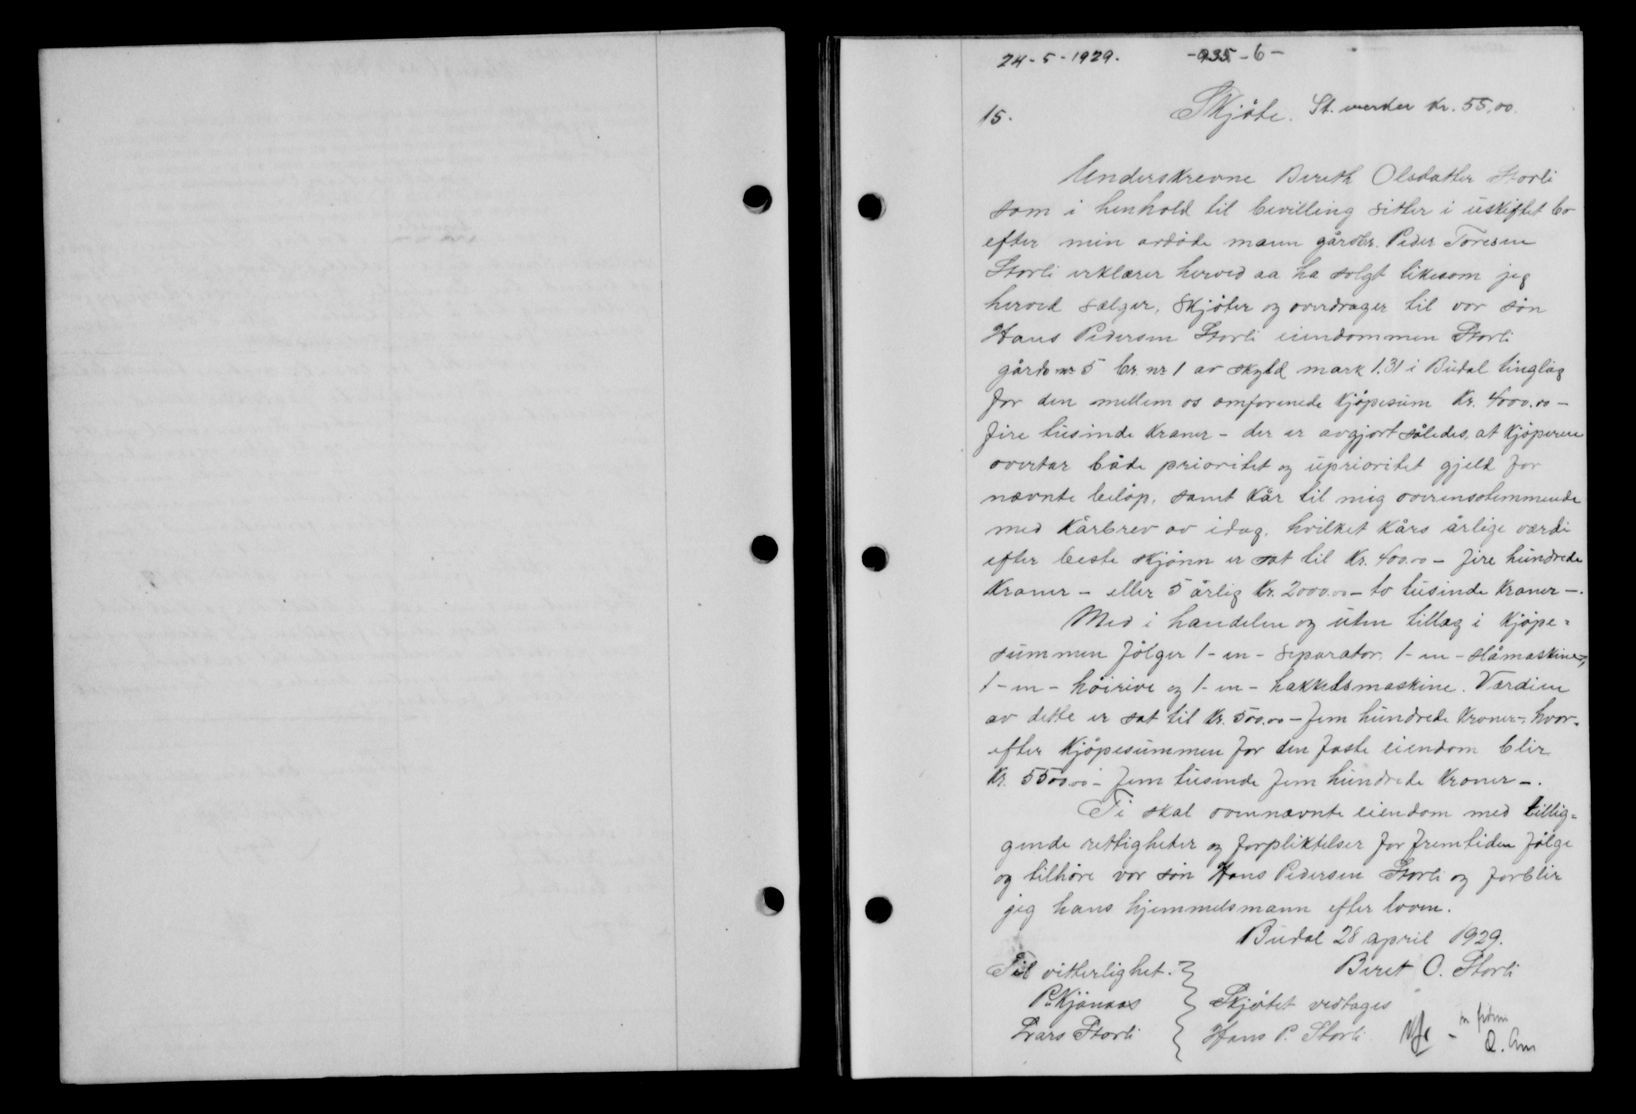 24-5-1929. -935-6-
15. Skjöte. St. merker Kr. 55,00.
Underskrevne Bereth Olsdatter Storli
som i henhold til bevilling sitter i uskiftet bo
efter min avdöde mann gårdbr. Peder Toresen
Storli erklærer herved aa ha solgt likesom jeg
herved sælger, skjöter og overdrager til vor sön
Hans Pedersen Storli eiendommen Storli
gårds nr 5 br. nr 1 av skyld mark 1.31 i Budal tinglag
for den mellem os omforenede kjöpesum Kr. 4000.00 -
fire tusinde kroner - der er avgjort således, at kjöperen
overtar både prioritet og uprioritet gjeld for
nævnte belöp, samt kår til mig overensstemmende
med kårbrev av idag, hvilket kårs årlige værdi
efter beste skjönn er sat til Kr. 400.00 - fire hundrede
kroner - eller 5 årlig Kr. 2000.00 - to tusinde kroner -.
Med i handelen og uten tillæg i kjöpe=
summen fölger 1 - en - separator, 1 - en - slåmaskine -,
1 - en - höirive og 1 - en - hakkelsmaskine. Værdien
av dette er sat til Kr. 500.00 - fem hundrede kroner -, hvor-
efter kjöpesummen for den faste eiendom blir
Kr. 5500.00 - fem tusinde fem hundrede kroner -.
Ti skal ovennævnte eiendom med tillig=
gende rettigheter og forpliktelser for fremtiden fölge
og tilhöre vor sön Hans Pedersen Storli og forblir
jeg hans hjemmelsmann efter loven.
Budal 28 april 1929.
Til vitterlighet. Beret O. Storli
P. Kjönaas Skjötet vedtages
Lars Storli Hans P. Storli